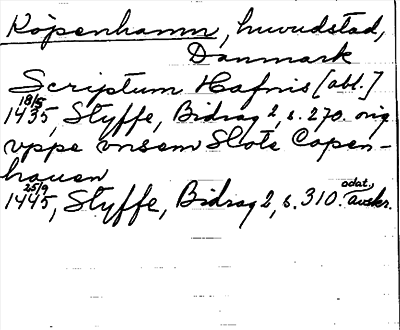 Köpenhamn, huvudstad,
Danmark
Scriptum Hafnis [abl.]
18/5
1435, Styffe, Bidrag 2, s. 270. orig
vppe vnsem Slote Copen-
hauen
25/9
1445, Styffe, Bidrag 2, s. 310. odat., avskr.